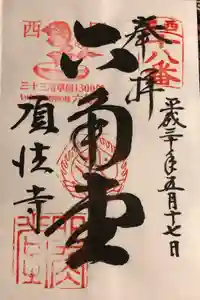 奉拝
西
十八番
平成三十年五月十七日
六角堂
西
三十三所草創1300年
頂法寺